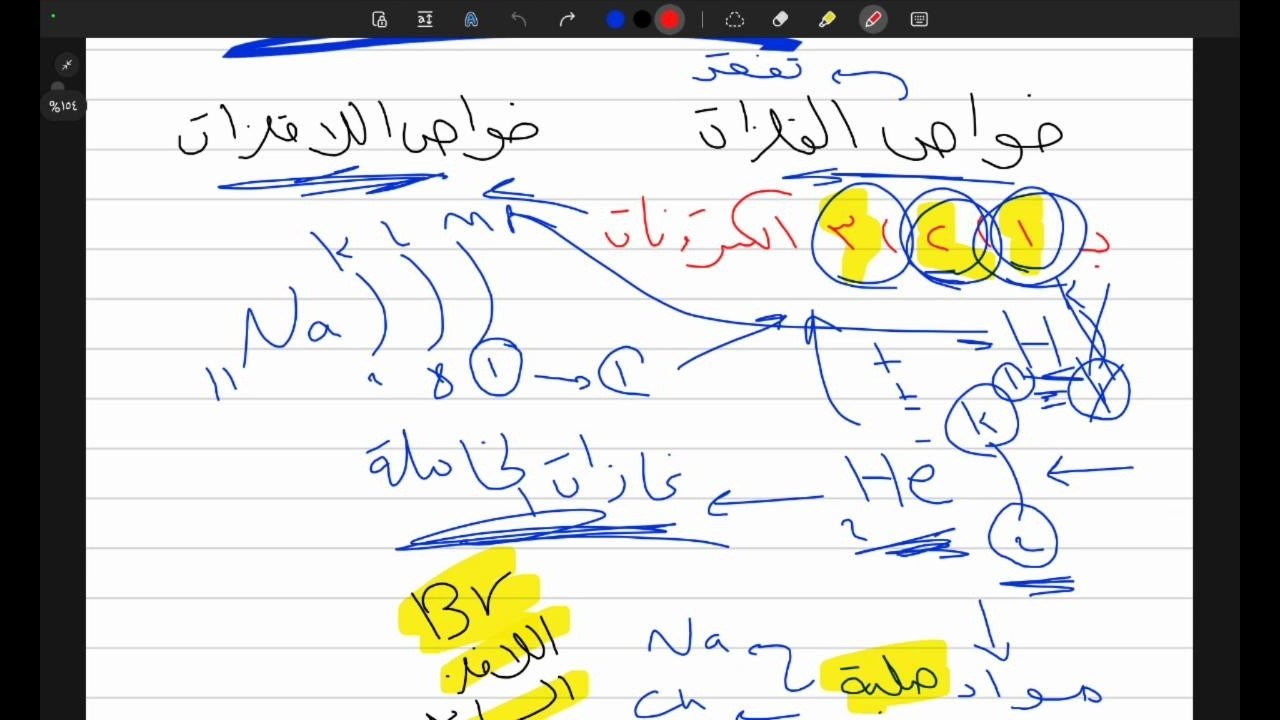 %١٥٤
تفقد
خواص الفلزات خواص اللافلزات
بـ ١ ، ٢ ، ٣ الكترونات
K L M
11 Na 2 8 1 → 1
H
1
+
-
K
2 He 2
غازات خاملة
Br
اللافلز
Na
مواد صلبة